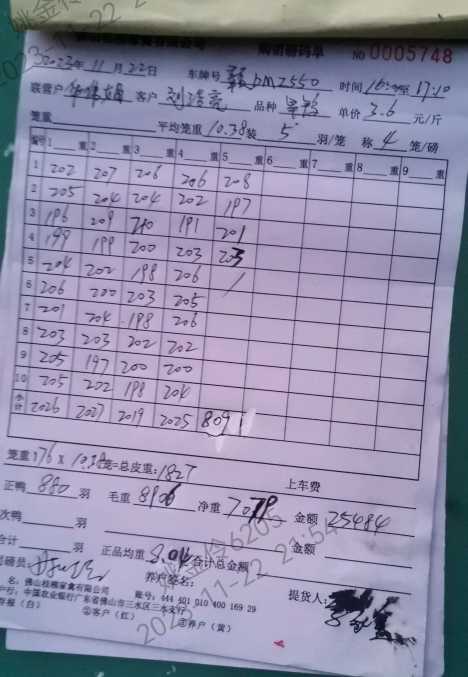 购销磅码单 NO 0005748
2023年11月22日 车牌号 DM2550 时间 16: 至 17:10
联营户 客户 刘浩亮 品种 单价 3.6 元/斤
笼重 平均笼重 10.38 装 5 羽/笼 称 4 笼/磅
编号 1 重 2 重 3 重 4 重 5 重 6 重 7 重 8 重 9 重
1 202 207 206 206 208
2 205 204 204 202 197
3 196 209 210 191 201
4 199 199 200 203 203
5 204 202 198 206 /
6 206 200 203 205
7 201 204 198 206
8 203 203 202 202
9 205 197 200 200
10 205 202 198 204
合计 2026 2027 2019 2025 809
笼重 176 x 10.38 笼=总皮重: 1827 上车费
正鸭 880 羽 毛重 8906 净重 7079 金额 25484
次鸭 羽 金额
合计 羽 正品均重 8.04 合计总金额
磅员 养户签名: 提货人:
名: 佛山桂柳家禽有限公司 账号: 444 401 010 400 169 29
户行: 中国农业银行广东省佛山市三水区三水支行
存根（白） ②客户（红） ③养户（黄）
姚金伶6205
2023-11-22 21:54